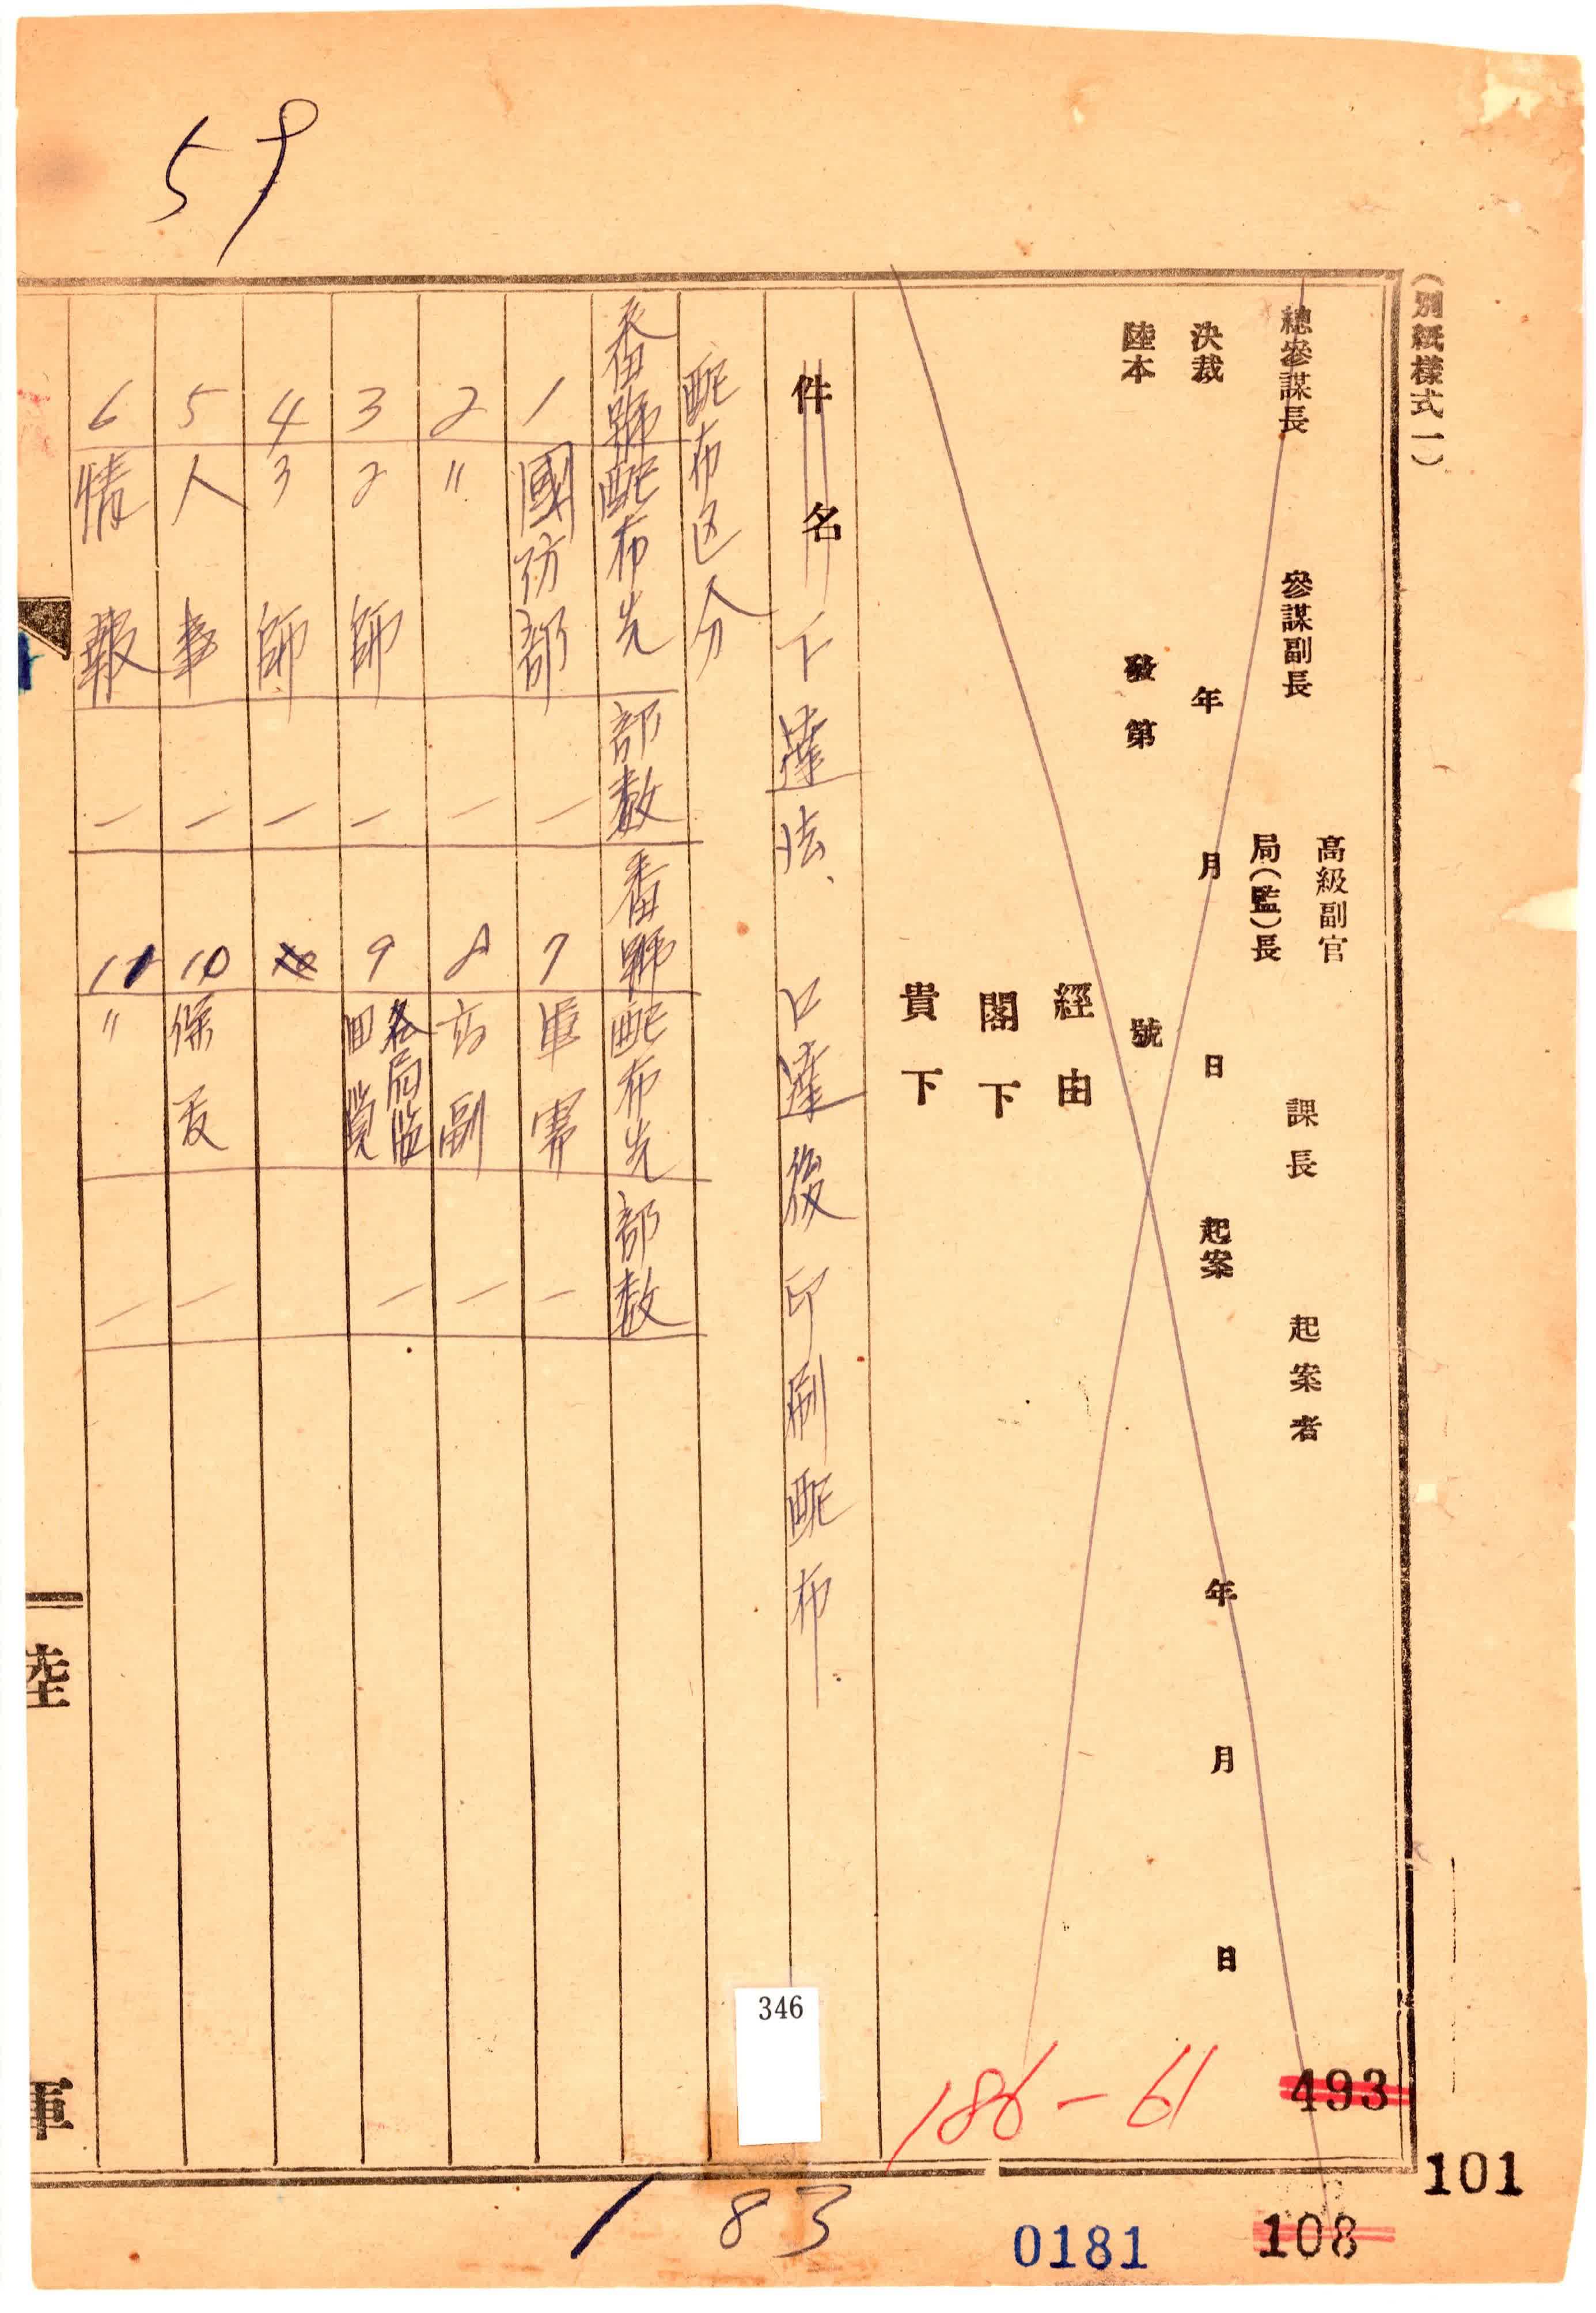 59
(別紙樣式一)
總參謀長 參謀副長 高級副官 局(監)長 課長 起案者
決裁 年 月 日 起案 年 月 日
陸本 發第 號
經由
閣下
貴下
件名 下達法、口達後印刷配布
配布区分
番號 配布先 部数 番號 配布先 部数
1 國防部 一 7 軍需 一
2 〃 一 8 高副 一
3 2師 一 9 各局監回覽 一
4 3師 一
5 人事 一 10 保友 一
6 情報 一 11 〃 一
陸
軍
346
186-61
493
101
183
0181
108